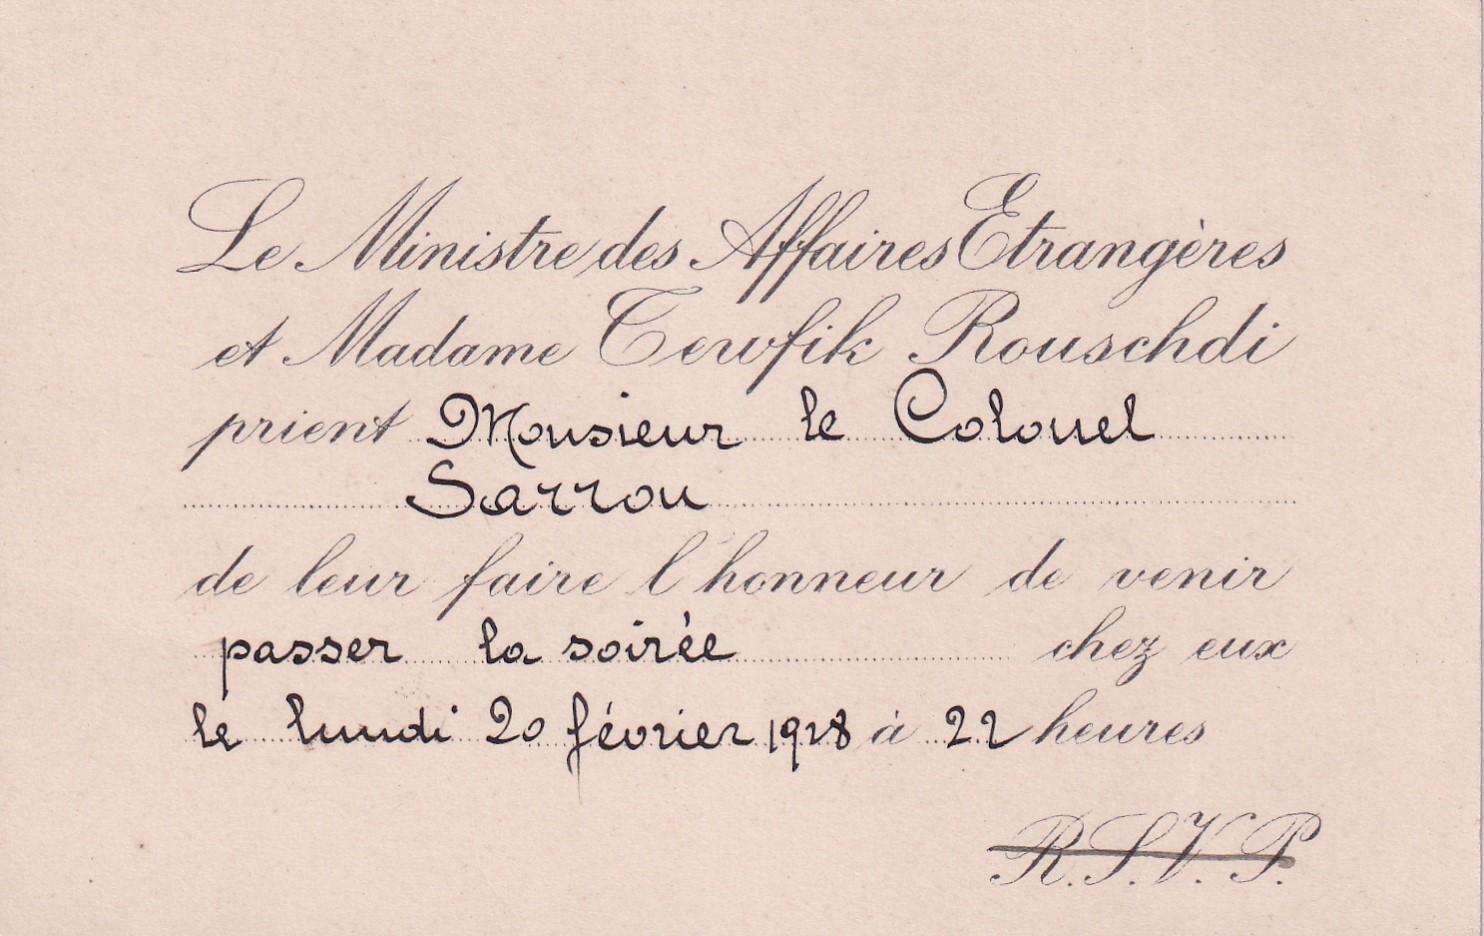 Le Ministre des Affaires Etrangères
et Madame Tewfik Rouschdi
prient Monsieur le Colonel
Sarrou
de leur faire l'honneur de venir
passer la soirée chez eux
le lundi 20 février 1928 à 22 heures
R.S.V.P.